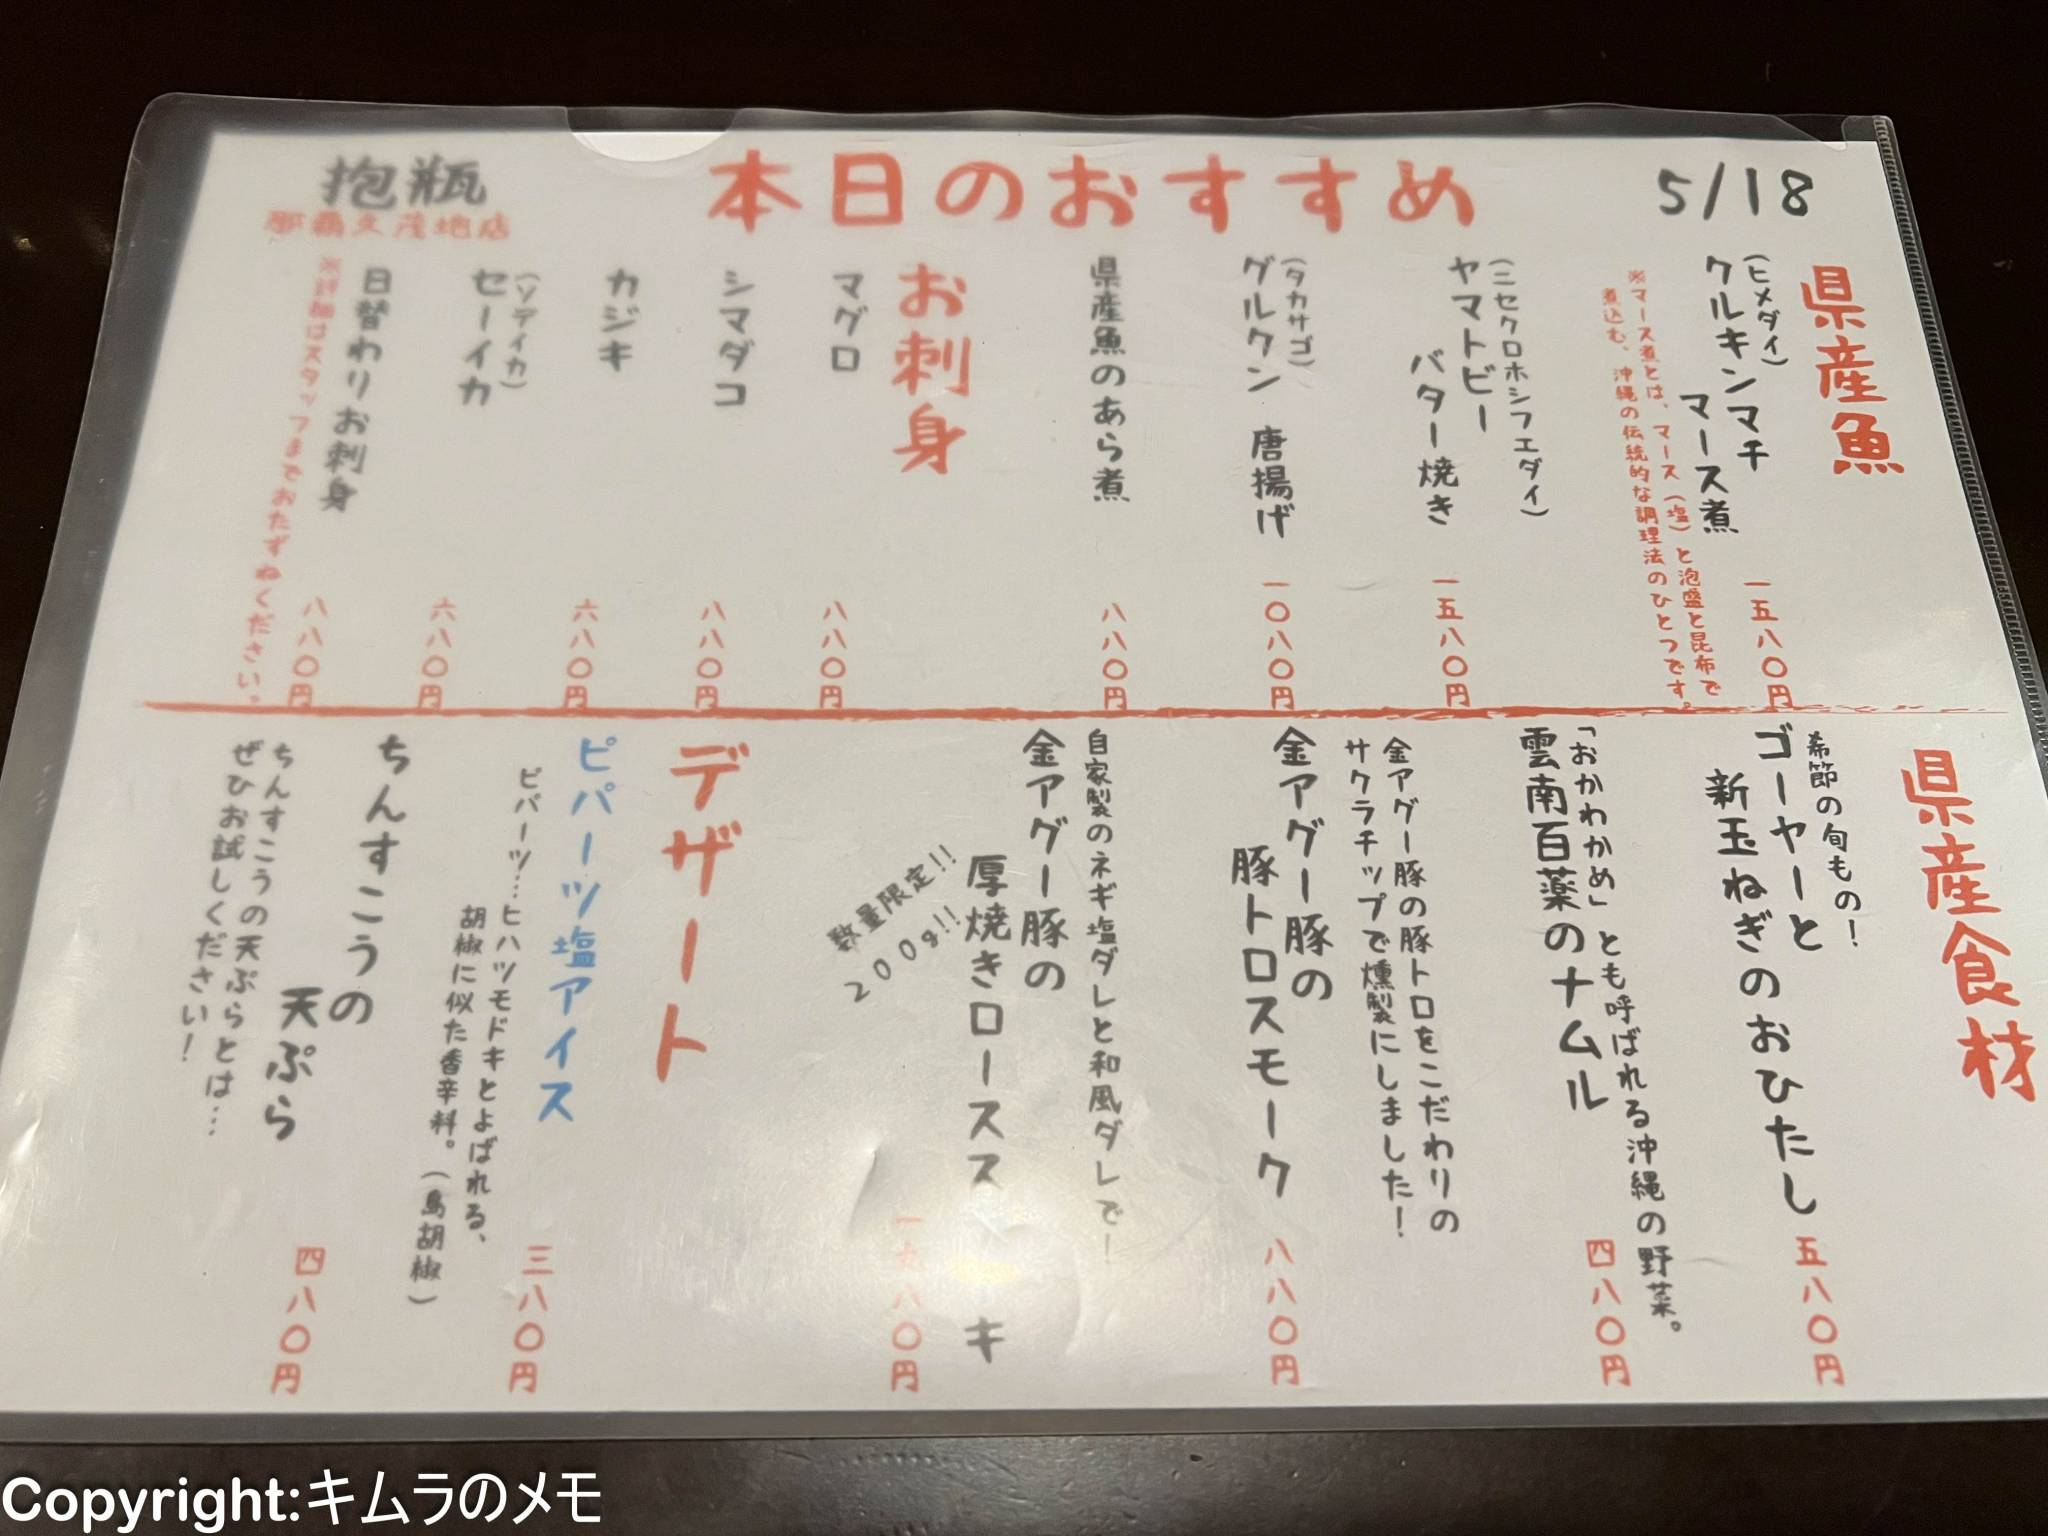 本日のおすすめ
5/18
抱瓶
那覇久茂地店
県産魚
(ヒメダイ)
クルキンマチ
マース煮
一五八〇円
※マース煮とは、マース(塩)と泡盛と昆布で
煮込む、沖縄の伝統的な調理法のひとつです。
(ニセクロホシフエダイ)
ヤマトビー
バター焼き
一五八〇円
(タカサゴ)
グルクン 唐揚げ
一〇八〇円
県産魚のあら煮
八八〇円
お刺身
マグロ
八八〇円
シマダコ
八八〇円
カジキ
六八〇円
(ソデイカ)
セーイカ
六八〇円
日替わりお刺身
八八〇円
※詳細はスタッフまでおたずねください。
県産食材
希節の旬もの!
ゴーヤーと
新玉ねぎのおひたし
五八〇円
「おかわかめ」とも呼ばれる沖縄の野菜。
雲南百薬のナムル
四八〇円
金アグー豚の豚トロをこだわりの
サクラチップで燻製にしました!
金アグー豚の
豚トロスモーク
八八〇円
自家製のネギ塩ダレと和風ダレで!
金アグー豚の
厚焼きロースス キ
数量限定!!
200g!!
八〇円
デザート
ピパーツ塩アイス
三八〇円
ピパーツ…ヒハツモドキとよばれる、
胡椒に似た香辛料。(島胡椒)
ちんすこうの
天ぷら
四八〇円
ちんすこうの天ぷらとは…
ぜひお試しください!
Copyright:キムラのメモ